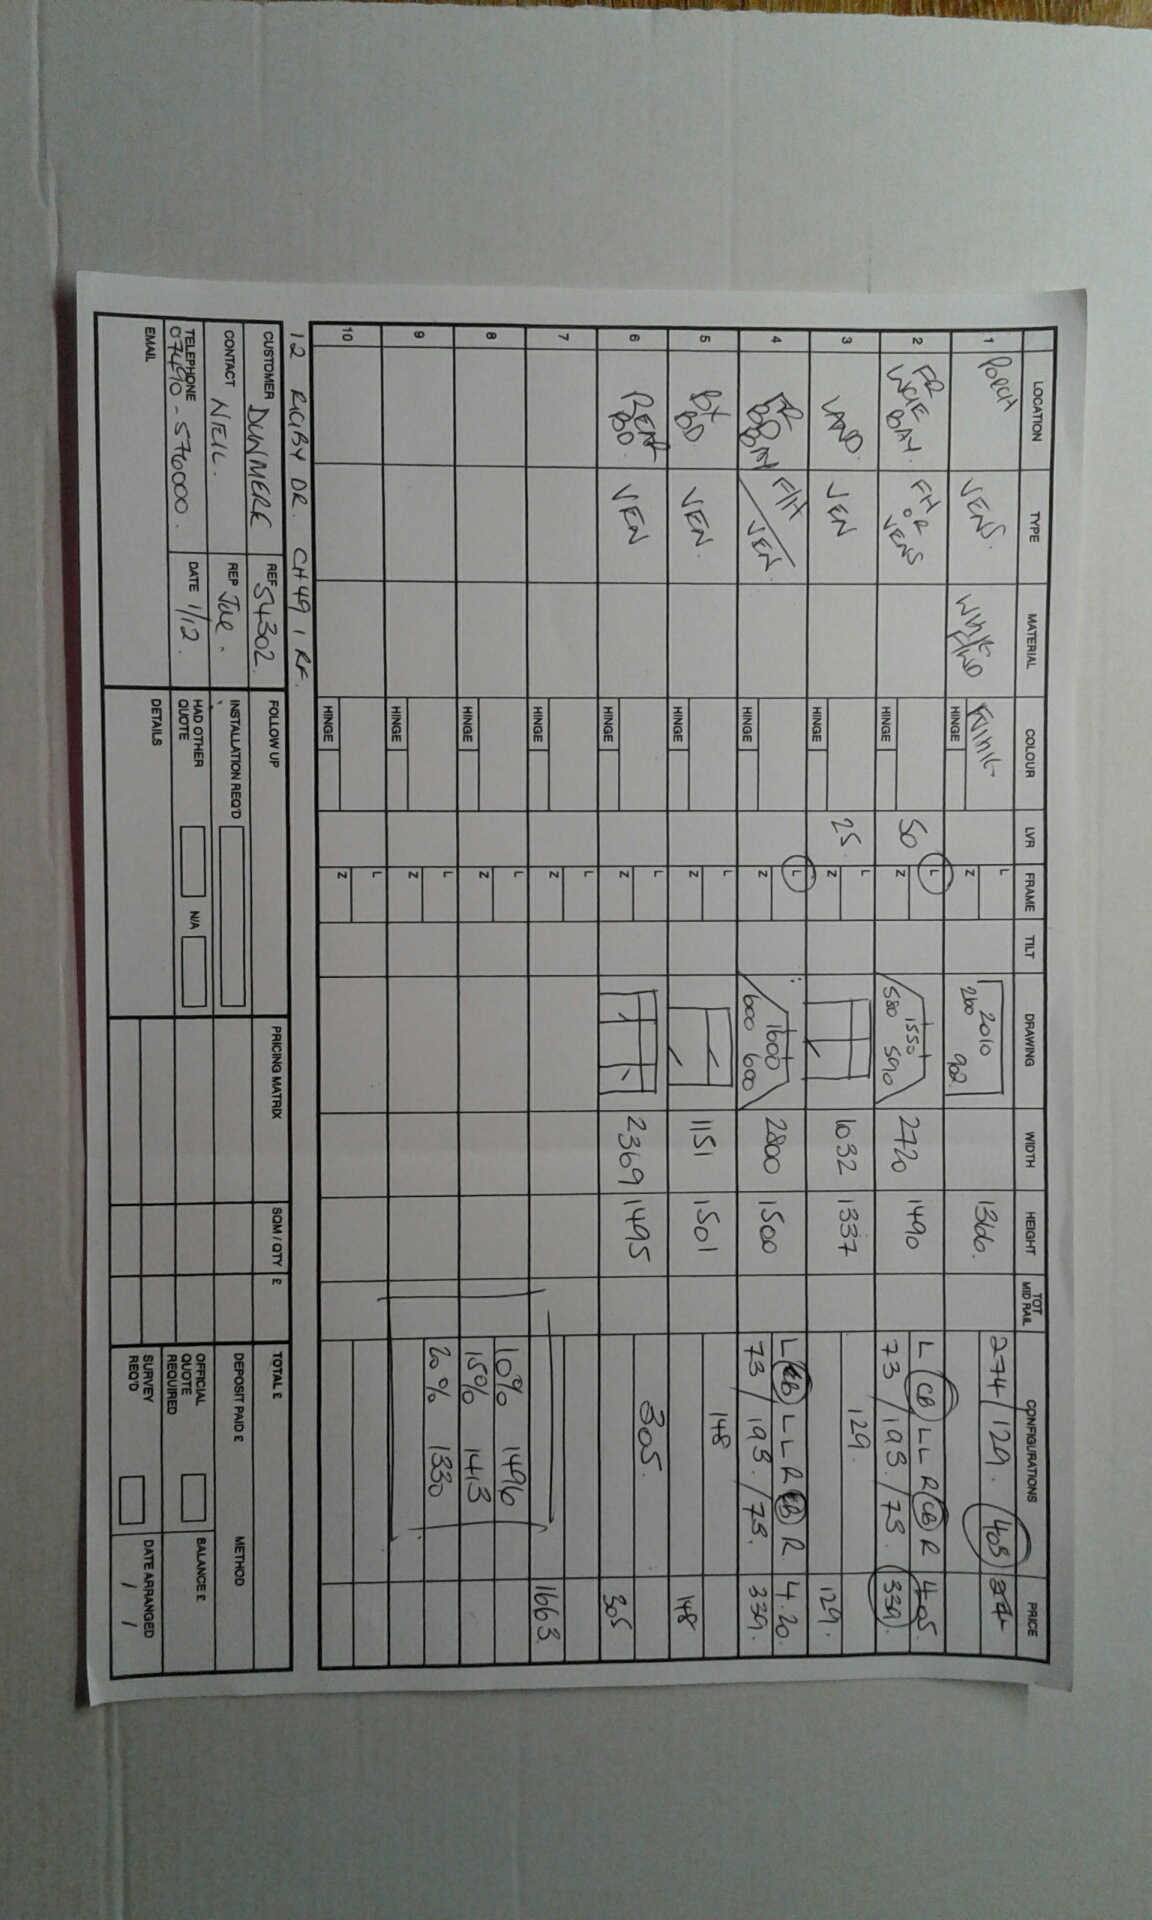 LOCATION TYPE MATERIAL COLOUR LVR FRAME TILT DRAWING WIDTH HEIGHT TOT MID RAIL CONFIGURATIONS PRICE
1 PORCH VENS. WHITE HINGE L Z 2010 260 902 1366. 274/129. 403
2 FR BAY. FH OR VENS HINGE 50 L Z 1550 580 590 2720 1490 L CB L L R CB R 405.
73/193./73. 339
3 LAND. VEN HINGE 25 L Z 1032 1337 129. 129.
4 FR BD BAY F/H / VEN. HINGE L Z 1600 600 600 2800 1500 L CB L L R CB R 4.20
73/193./73. 339.
5 BX BD VEN. HINGE L Z 1151 1501 148 148
6 REAR BD. VEN HINGE L Z 2369 1495 305. 305
7 HINGE L Z 1663.
8 HINGE L Z 10% 1496
15% 1413
9 HINGE L Z 20% 1330
10 HINGE L Z
12 RIGBY DR. CH49 1RF.
CUSTOMER DUNMERE REF 54302. FOLLOW UP PRICING MATRIX SQM / QTY £ TOTAL £
CONTACT NEIL. REP Jae. INSTALLATION REQ'D DEPOSIT PAID £ METHOD
TELEPHONE 07490-576000. DATE 1/12. HAD OTHER QUOTE N/A OFFICIAL QUOTE REQUIRED BALANCE £
EMAIL DETAILS SURVEY REQ'D DATE ARRANGED / /